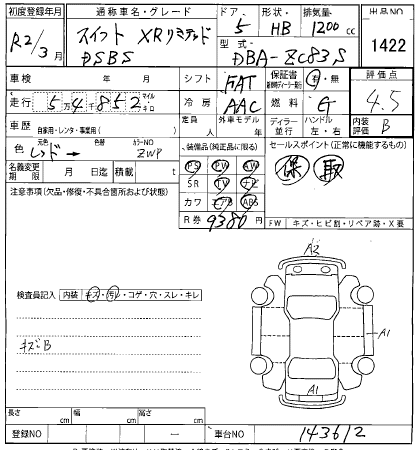 初度登録年月 通称車名・グレード ドア 形状 排気量 出品NO
R2/3月 スイフト XRリミテッド DSBS 5 HB 1200 cc 1422
型式 DBA-ZC83S
車検 年 月 シフト FAT 保証書 有・無 評価点 4.5
走行 5万4千852 マイル キロ 冷房 AAC 燃料 G
車歴 自家用・レンタ・事業用( ) 定員 人 外車モデル 年 ディーラー 並行 ハンドル 左・右 内装評価 B
色 元色 レッド → 色替 カラーNO ZWP 装備品(純正品に限る) セールスポイント(正常に機能するもの)
PS PW AW 保 取
名義変更期限 月 日迄 積載 t SR TV ナビ
注意事項(欠品・修復・不具合箇所および状態) カワ エアB ABS
R券 9380円 FW キズ・ヒビ割・リペア跡・X要
A2
検査員記入 内装 キズ・汚レ・コゲ・穴・スレ・キレ
キズB
A1
A1
長さ cm 幅 cm 高さ cm
登録NO － 車台NO 143612